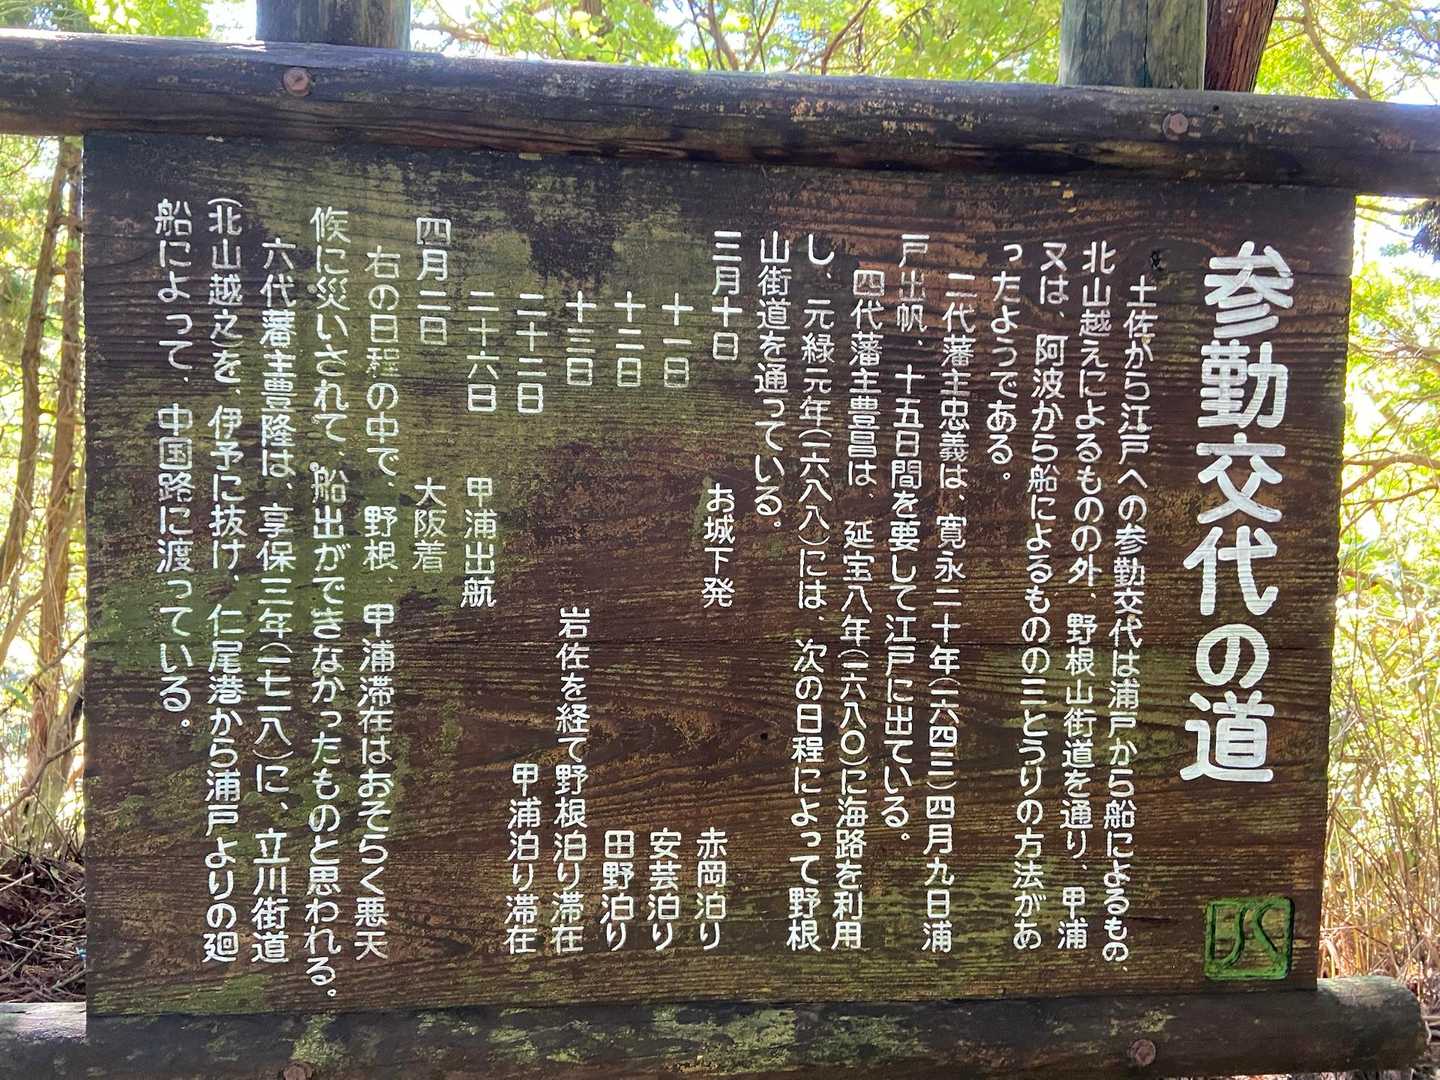 参勤交代の道
土佐から江戸への参勤交代は浦戸から船によるもの、
北山越えによるものの外、野根山街道を通り、甲浦
又は、阿波から船によるものの三とうりの方法があ
ったようである。
二代藩主忠義は、寛永二十年(一六四三)四月九日浦
戸出帆、十五日間を要して江戸に出ている。
四代藩主豊昌は、延宝八年(一六八〇)に海路を利用
し、元緑元年(一六八八)には、次の日程によって野根
山街道を通っている。
三月十日 お城下発 赤岡泊り
十一日 安芸泊り
十二日 田野泊り
十三日 岩佐を経て野根泊り滞在
二十二日 甲浦泊り滞在
二十六日 甲浦出航
四月二日 大阪着
右の日程の中で、野根、甲浦滞在はおそらく悪天
候に災いされて、船出ができなかったものと思われる。
六代藩主豊隆は、享保三年(一七一八)に、立川街道
(北山越之を、伊予に抜け、仁尾港から浦戸よりの廻
船によって、中国路に渡っている。